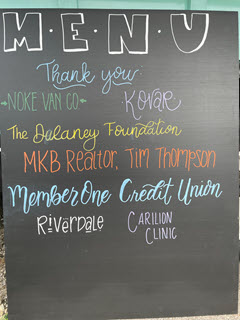 M·E·N·U
Thank you
NOKE VAN CO KOVAR
The Dulaney Foundation
MKB Realtor, Tim Thompson
Member One Credit Union
RIVERDALE CARILION
CLINIC